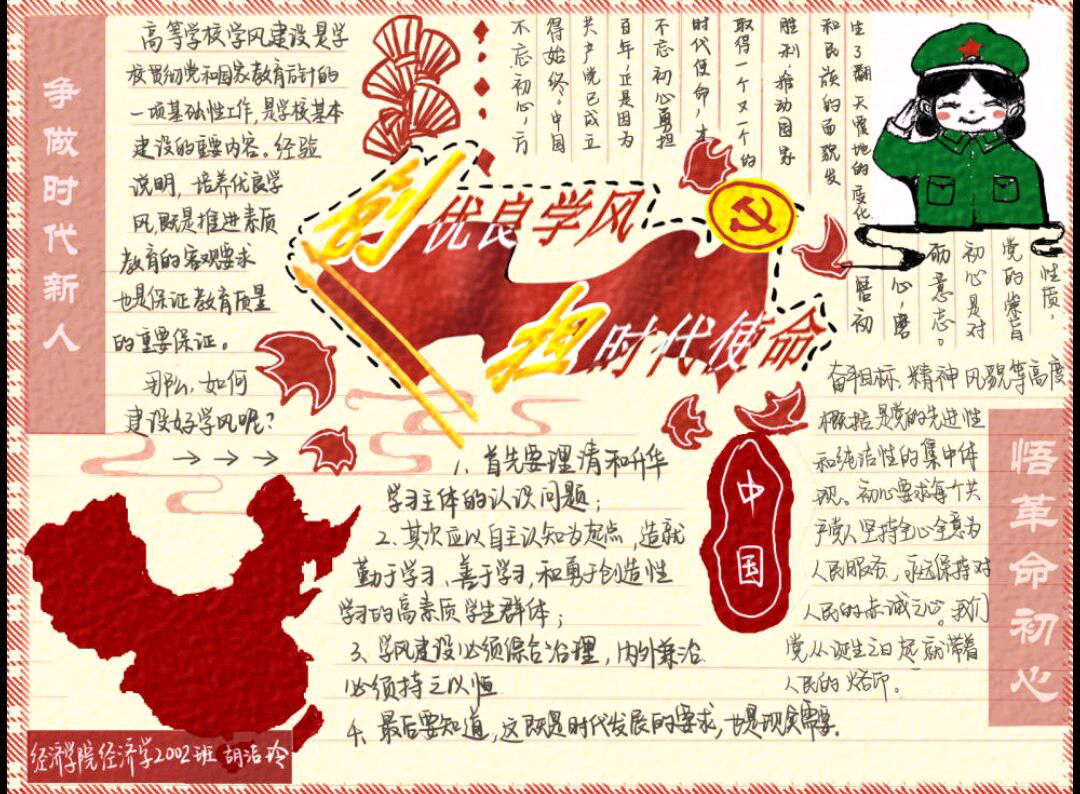 争做时代新人
高等学校学风建设是学
校贯彻党和国家教育方针的
一项基础性工作,是学校基本
建设的重要内容。经验
说明,培养优良学
风既是推进素质
教育的客观要求
也是保证教育质量
的重要保证。
那么,如何
建设好学风呢?
→→→
创优良学风
担时代使命
不忘初心,方
得始终。中国
共产党已成立
百年正是因为
不忘初心勇担
时代使命,才
取得一个又一个的
胜利,推动国家
和民族的面貌发
生了翻天覆地的变化
悟初
心,磨
砺意志。
初心是对
党的宗旨
性质,
奋斗目标、精神风貌等高度
概括是党的先进性
和纯洁性的集中体
现。初心要求每个共
产党人坚持全心全意为
人民服务,永远保持对
人民的赤诚之心。我们
党从诞生之日起就带着
人民的烙印。
悟革命初心
1、首先要理清和升华
学习主体的认识问题;
2、其次应以自主认知为起点,造就
勤于学习、善于学习,和勇于创造性
学习的高素质学生群体;
3、学风建设必须综合治理,内外兼治
必须持之以恒
4、最后要知道,这既是时代发展的要求,也是现实需要。
中国
经济学院经济学2002班 胡洁玲